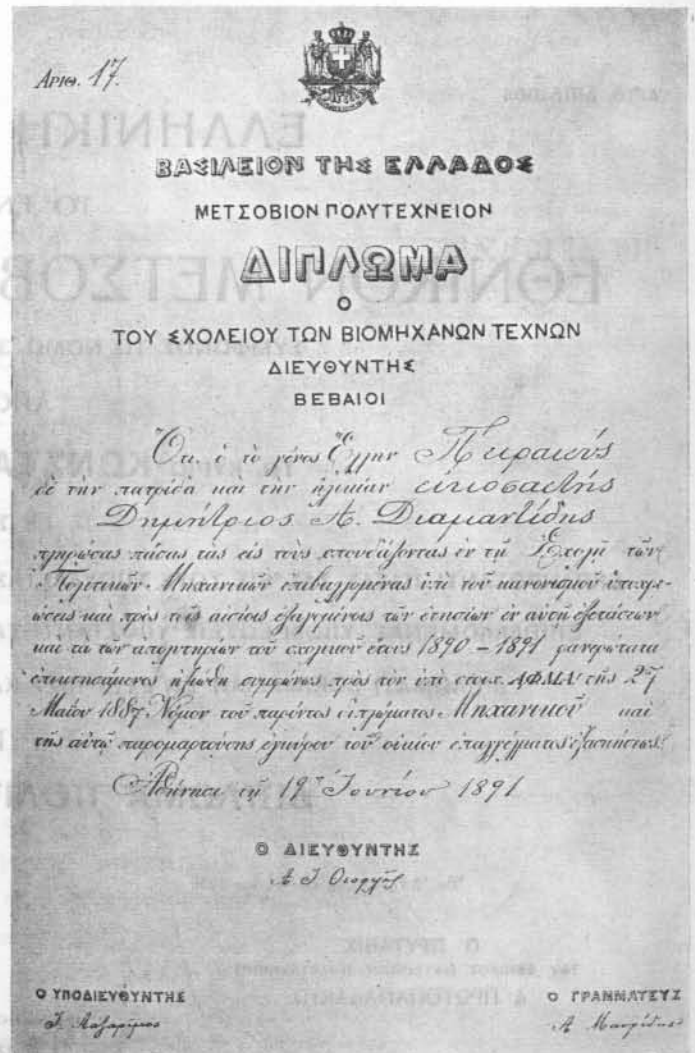 Αριθ. 17.
ΒΑΣΙΛΕΙΟΝ ΤΗΣ ΕΛΛΑΔΟΣ
ΜΕΤΣΟΒΙΟΝ ΠΟΛΥΤΕΧΝΕΙΟΝ
ΔΙΠΛΩΜΑ
Ο
ΤΟΥ ΣΧΟΛΕΙΟΥ ΤΩΝ ΒΙΟΜΗΧΑΝΩΝ ΤΕΧΝΩΝ
ΔΙΕΥΘΥΝΤΗΣ
ΒΕΒΑΙΟΙ
Ὅτι ὁ τὸ γένος Ἕλλην Πειραιεύς
δὲ τὴν πατρίδα καὶ τὴν ἡλικίαν εἰκοσαετής
Δημήτριος Α. Διαμαντίδης
πληρώσας πάσας τὰς εἰς τοὺς σπουδάζοντας ἐν τῇ Σχολῇ τῶν
Πολιτικῶν Μηχανικῶν ἐπιβαλλομένας ὑπὸ τοῦ κανονισμοῦ ὑποχρε-
ώσεις καὶ πρὸς τοῖς αἰσίοις ἐξαγομένοις τῶν ἐτησίων ἐν αὐτῇ ἐξετάσεων
καὶ τὰ τῶν ἀπολυτηρίων τοῦ σχολικοῦ ἔτους 1890 – 1891 φανερώτατα
ἐπικτησάμενος ἠξιώθη συμφώνως πρὸς τὸν ὑπὸ στοιχ. ΑΦΜΑ΄ τῆς 27
Μαΐου 1887 Νόμον τοῦ παρόντος διπλώματος Μηχανικοῦ καὶ
τῆς αὐτῷ παρομαρτούσης ἐγκύρου τοῦ οἰκείου ἐπαγγέλματος ἐξασκήσεως.
Ἀθήνησι τῇ 19ῃ Ἰουνίου 1891
Ο ΔΙΕΥΘΥΝΤΗΣ
Ο ΥΠΟΔΙΕΥΘΥΝΤΗΣ
Ο ΓΡΑΜΜΑΤΕΥΣ